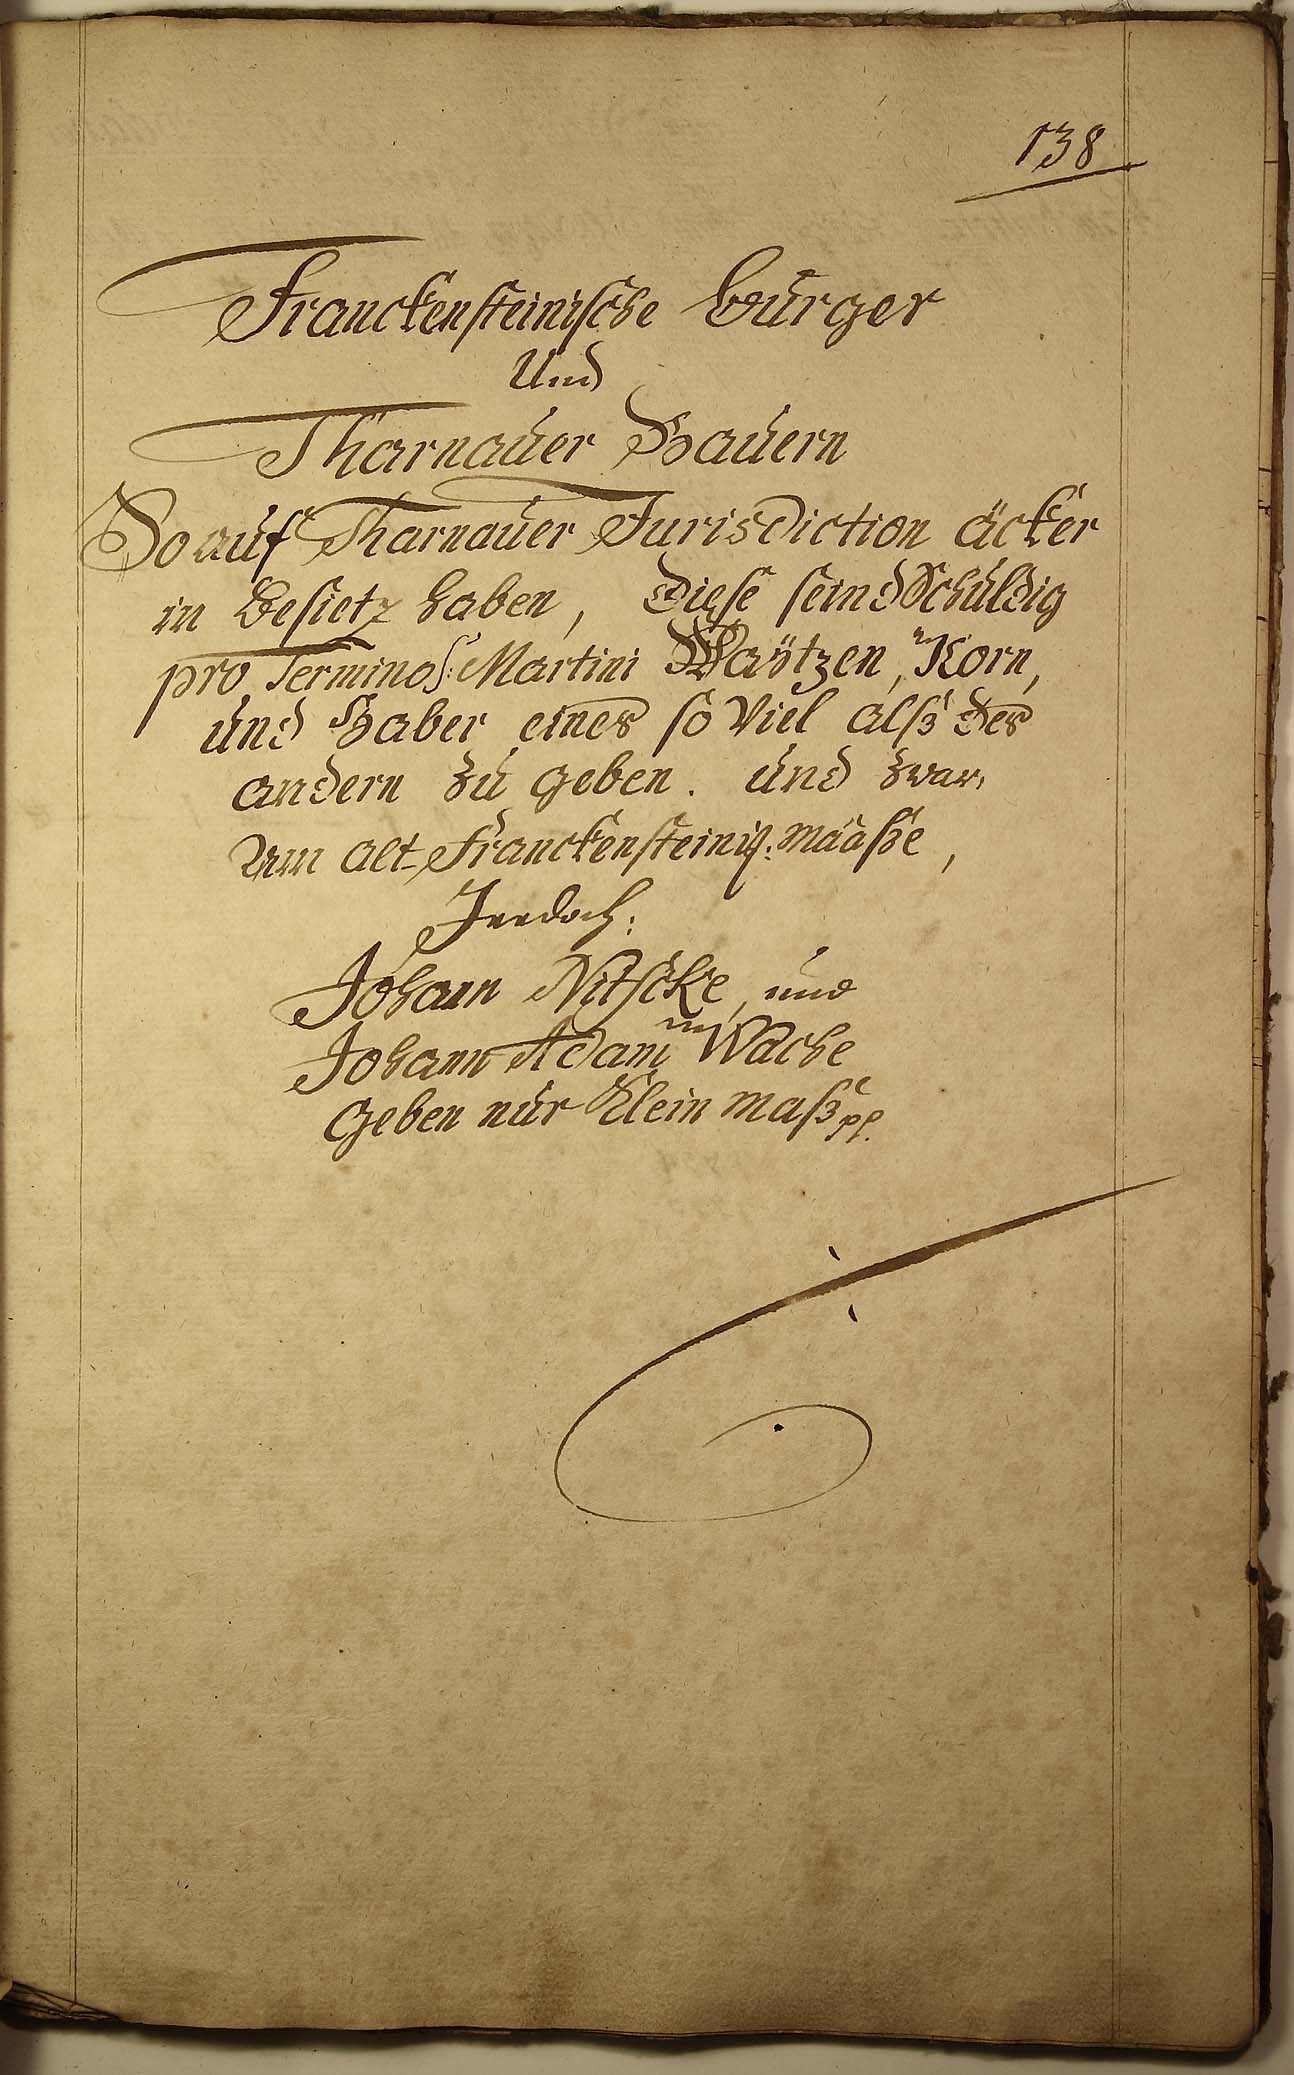 138
Franckensteinische Bürger
Und
Tharnauer Bauern
So auf Tharnauer Jurisdiction äcker
in Besietz haben, Diese seind Schuldig
pro Termino S: Martini Waÿtzen, Korn,
und Haber eines so Viel alß des
andern zu geben. und zwar,
alt Franckensteinis: määße,
Jeedoch:
Johann Nitschke, und
Johann Adam Wache
geben nur Klein maß pp.